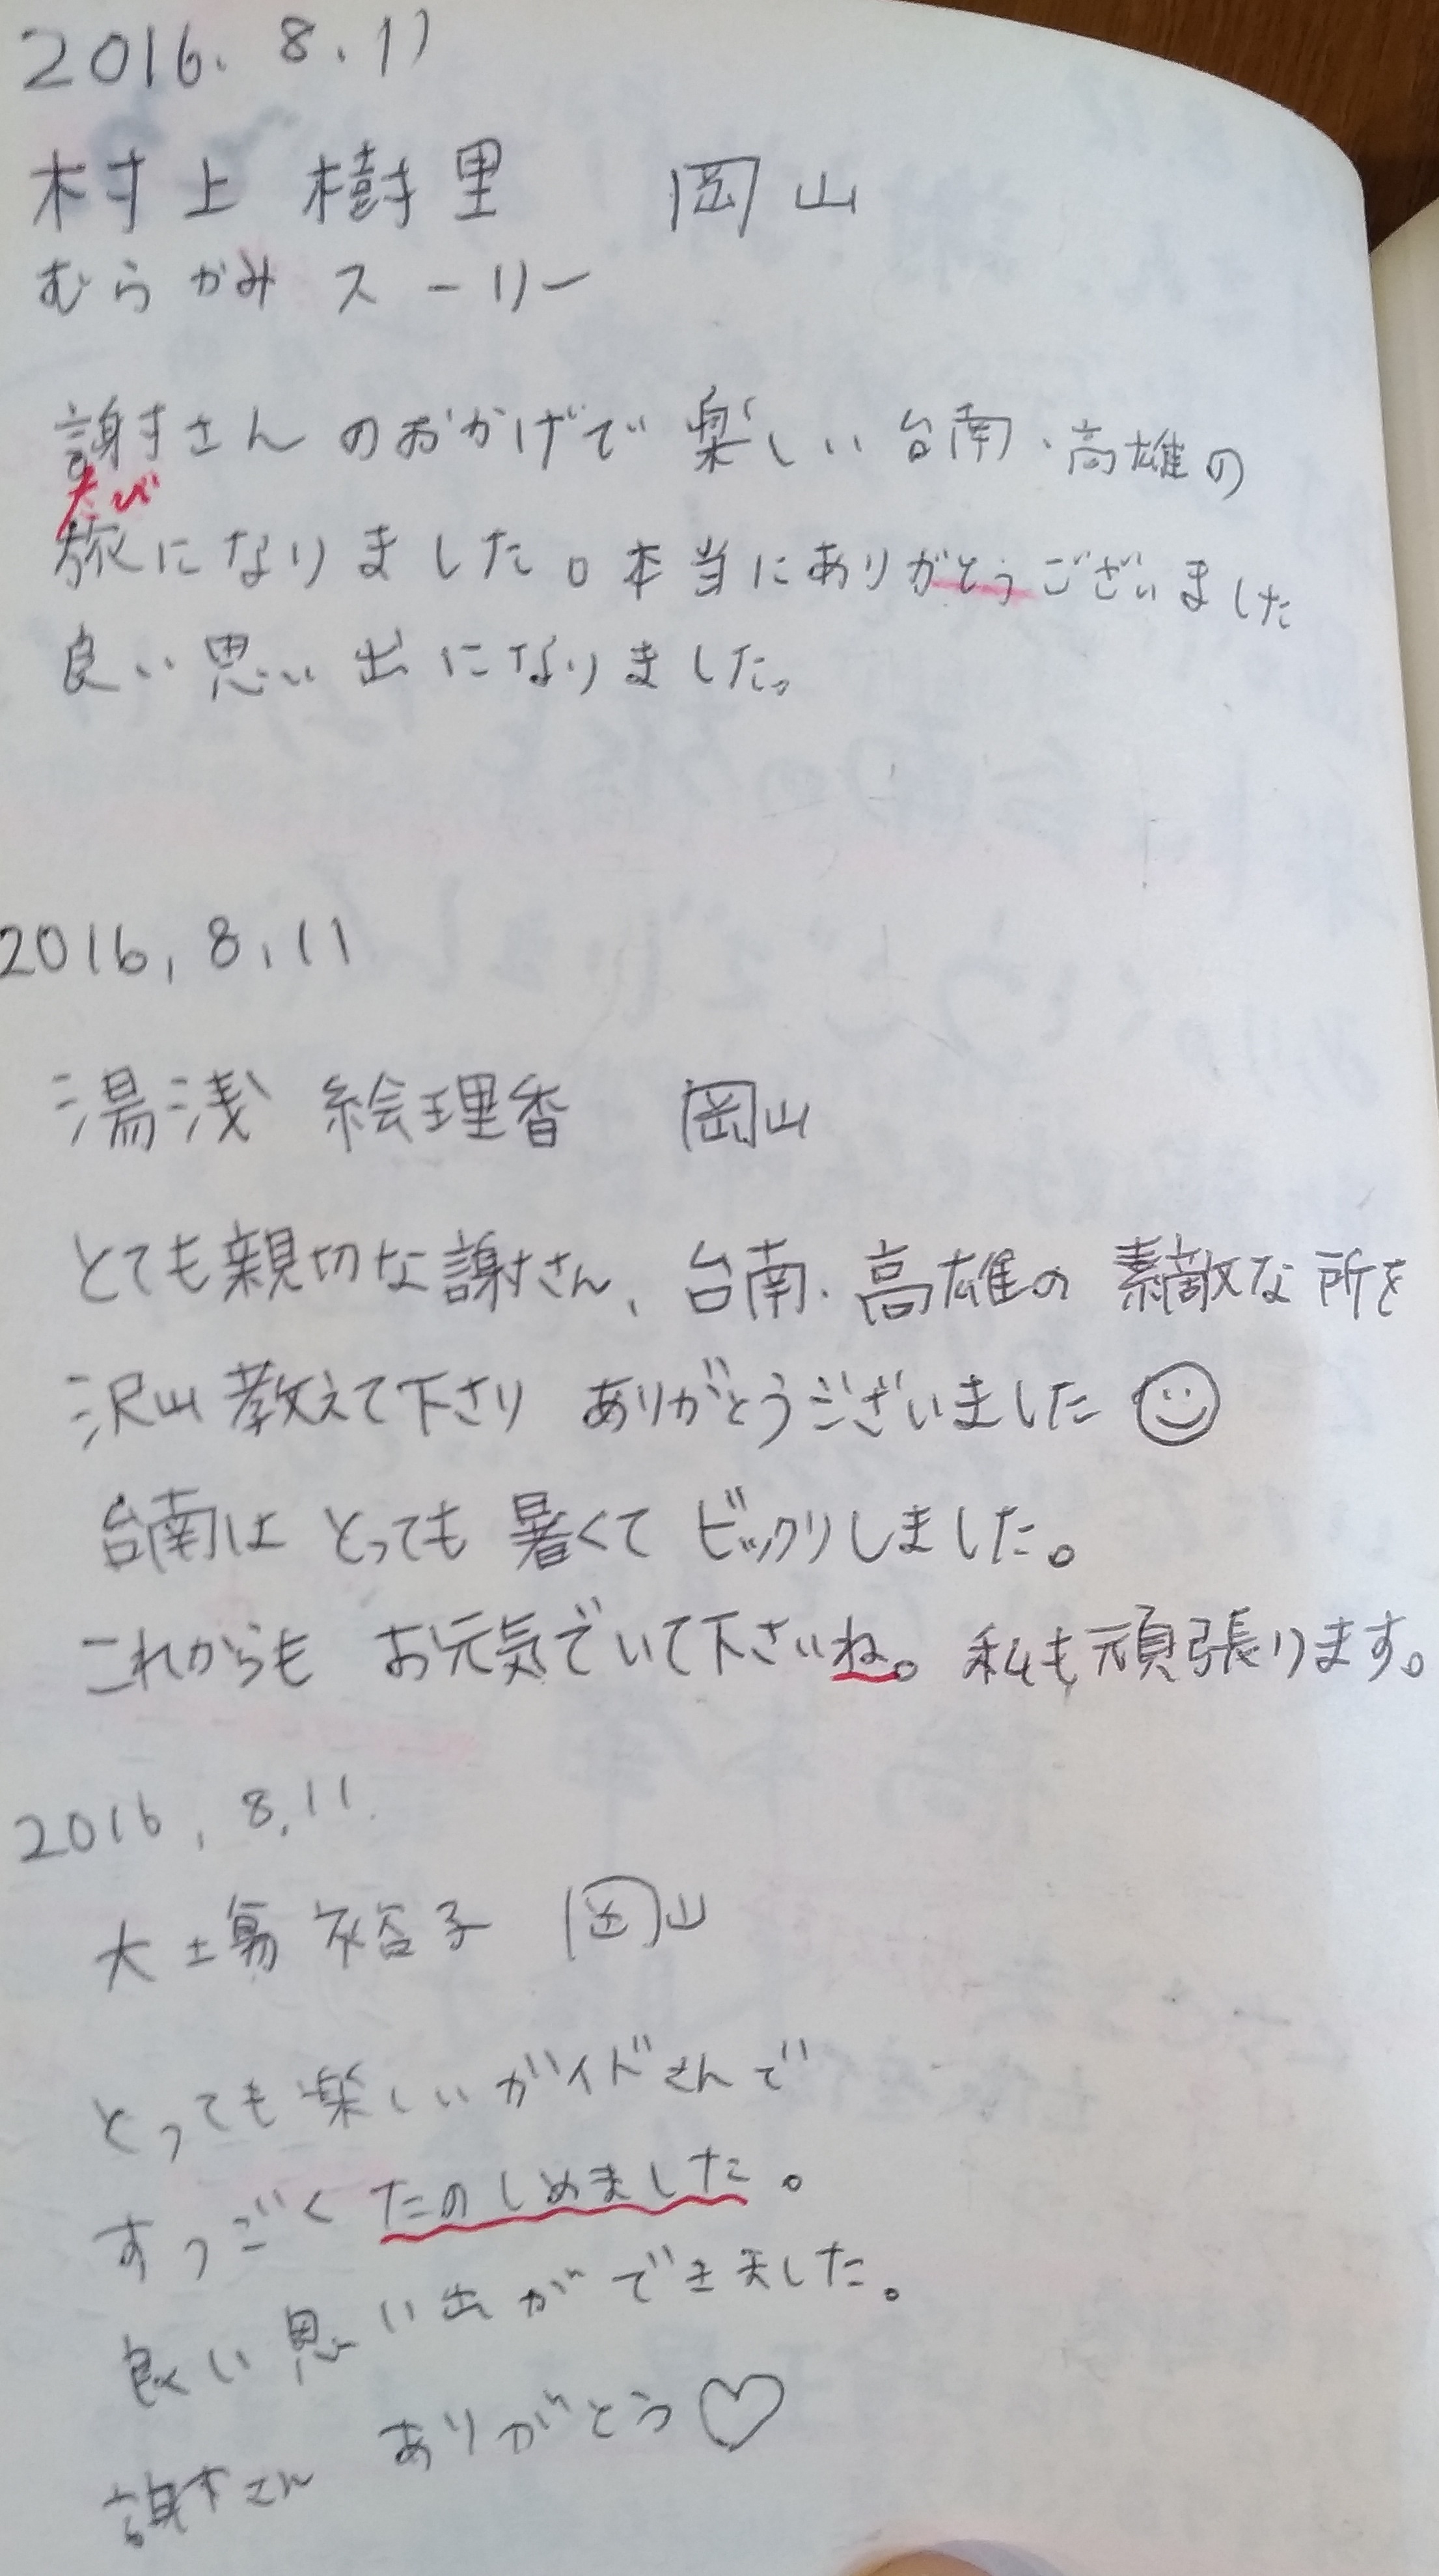 2016. 8. 11
村上 樹里 岡山
むらかみ スーリー
謝さんのおかげで楽しい台南・高雄の
たび
旅になりました。本当にありがとうございました
良い思い出になりました。
2016, 8, 11
湯浅 絵理香 岡山
とても親切な謝さん、台南・高雄の素敵な所を
沢山教えて下さり ありがとうございました
台南は とっても 暑くて ビックリしました。
これからも お元気でいて下さいね。私も頑張ります。
2016, 8, 11.
大場 裕子 岡山
とっても楽しいガイドさんで
すっごくたのしめました。
良い思い出ができました。
謝さん ありがとう♡